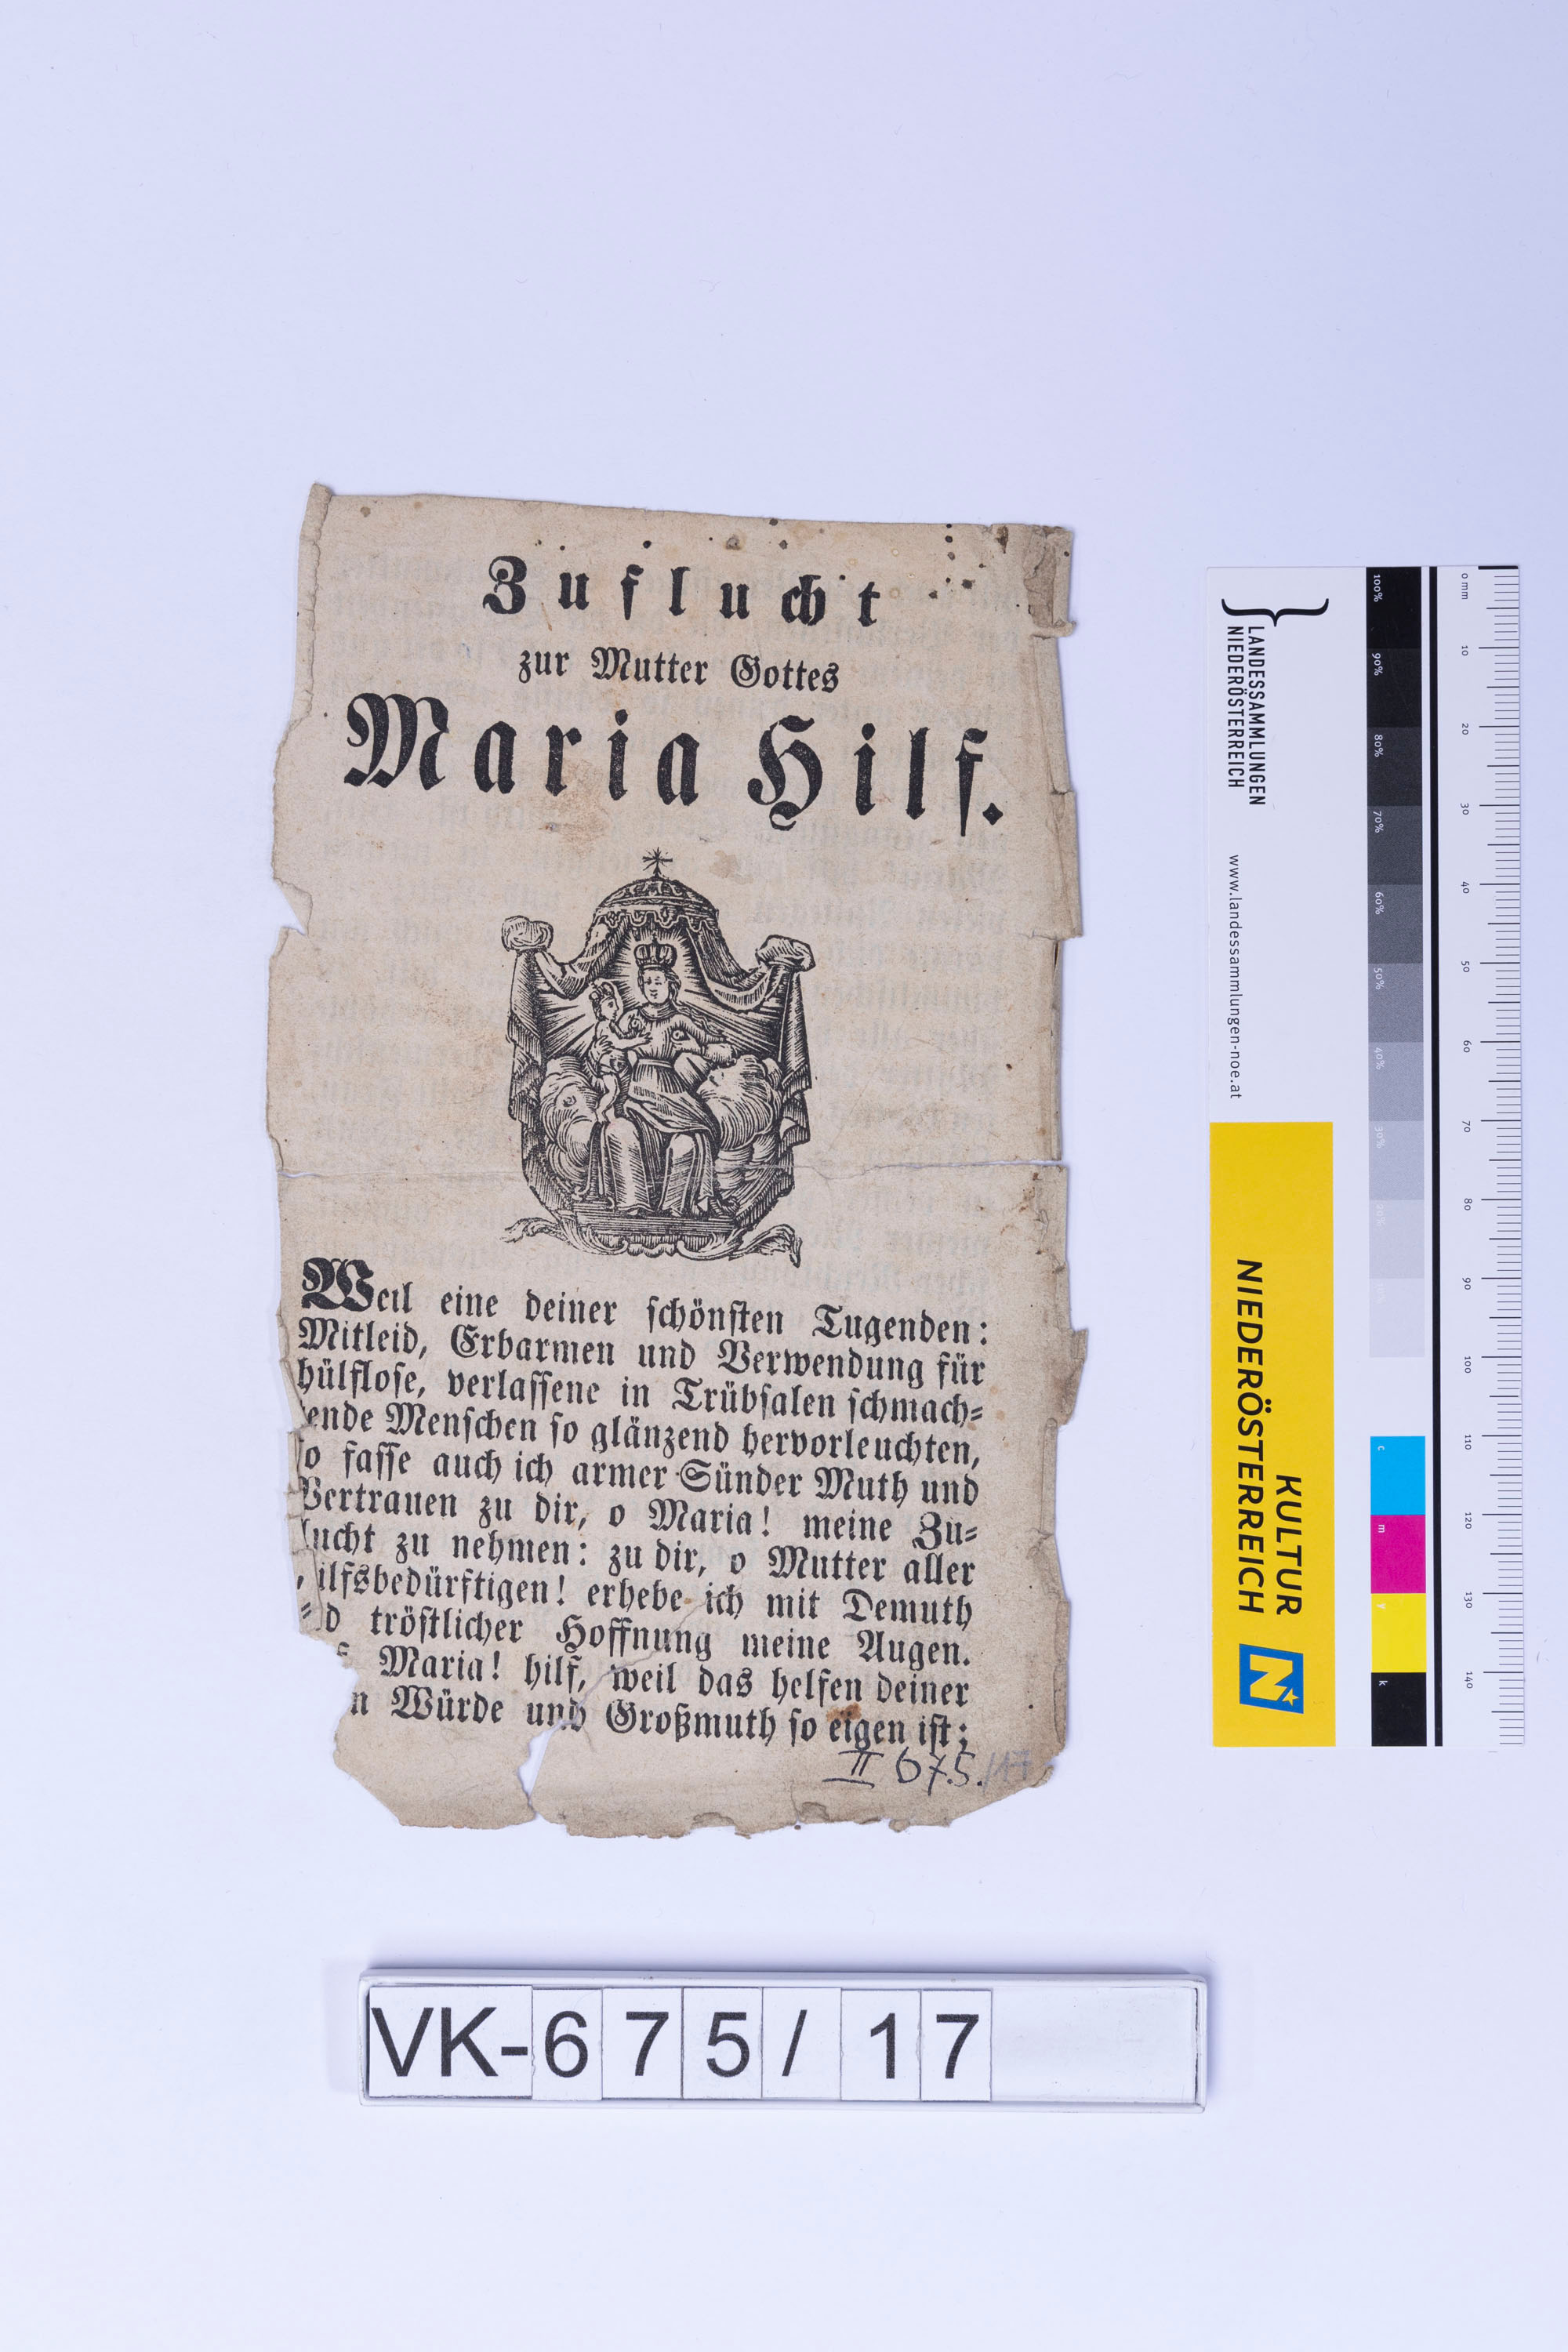 Zuflucht
zur Mutter Gottes
Maria Hilf.
Weil eine deiner schönsten Tugenden:
Mitleid, Erbarmen und Verwendung für
hülflose, verlassene in Trübsalen schmach=
tende Menschen so glänzend hervorleuchten,
so fasse auch ich armer Sünder Muth und
Vertrauen zu dir, o Maria! meine Zu=
lucht zu nehmen: zu dir, o Mutter aller
ilfsbedürftigen! erhebe ich mit Demuth
d tröstlicher Hoffnung meine Augen.
Maria! hilf, weil das helfen deiner
n Würde und Großmuth so eigen ist;
II 675./17
VK-675/17
LANDESSAMMLUNGEN
NIEDERÖSTERREICH
www.landessammlungen-noe.at
KULTUR
NIEDERÖSTERREICH
N
100%
90%
80%
70%
60%
50%
40%
30%
20%
c
m
y
k
0 mm
10
20
30
40
50
60
70
80
90
100
110
120
130
140